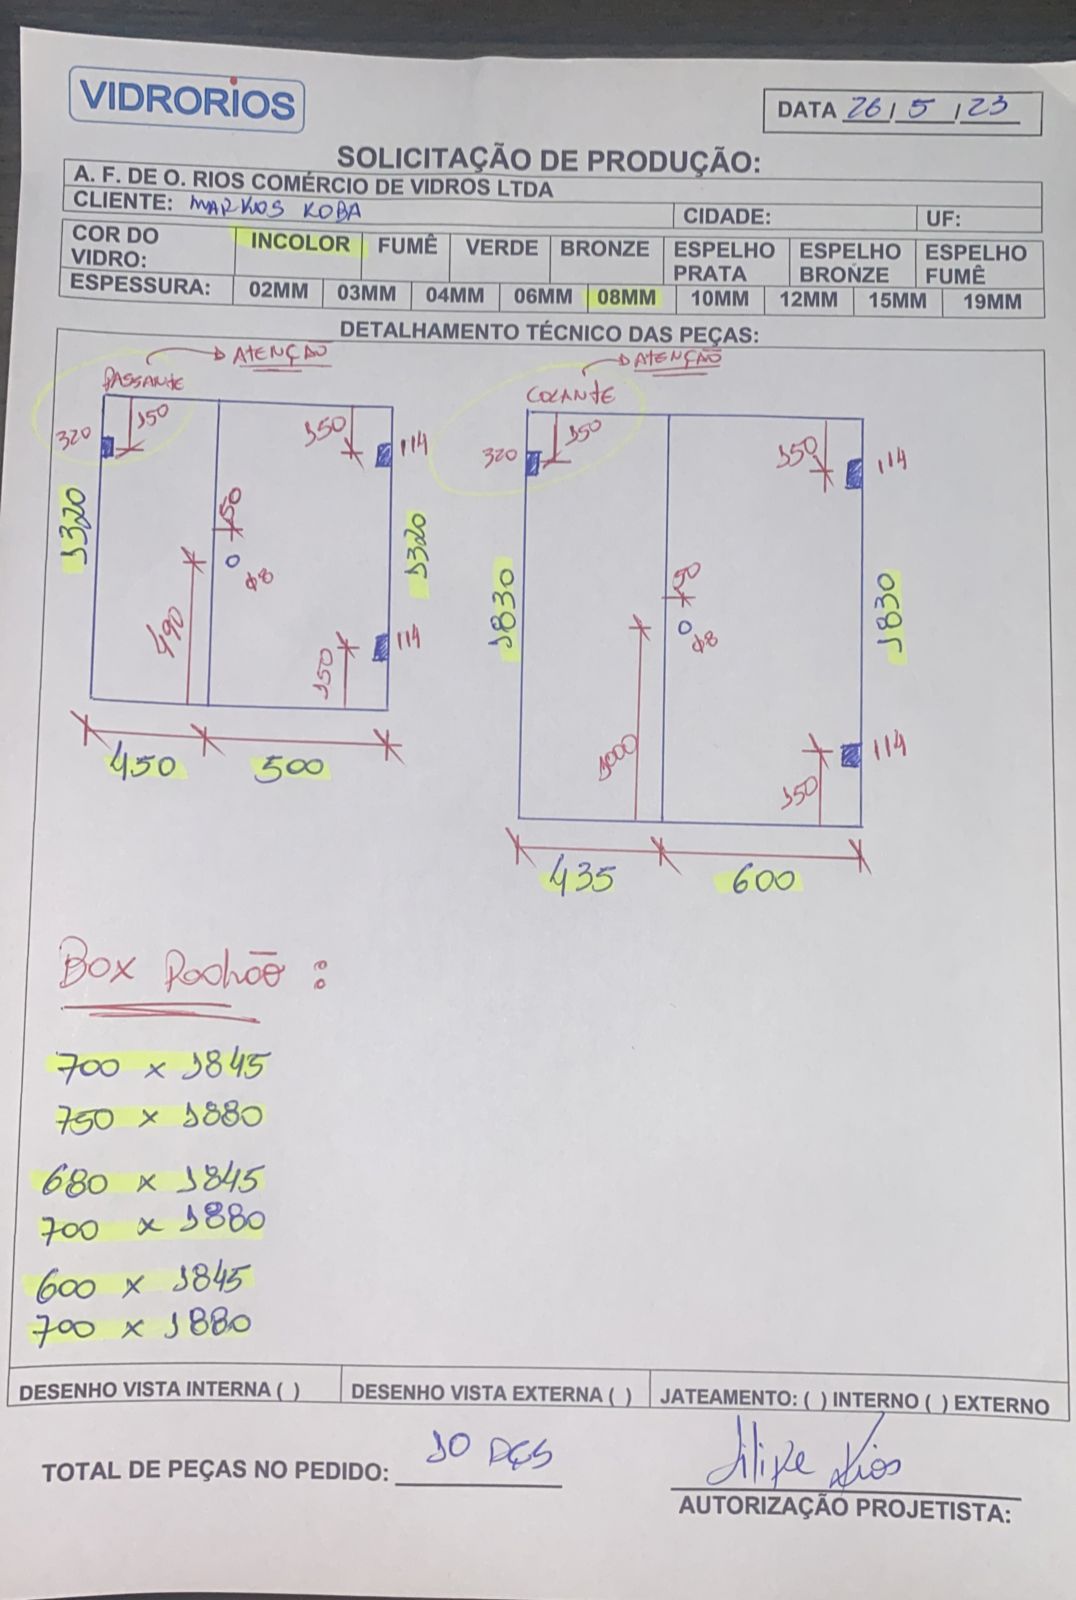 VIDRORIOS
DATA 26/5/23
SOLICITAÇÃO DE PRODUÇÃO:
A. F. DE O. RIOS COMÉRCIO DE VIDROS LTDA
CLIENTE: MARKOS KOBA CIDADE: UF:
COR DO VIDRO: INCOLOR FUMÊ VERDE BRONZE ESPELHO PRATA ESPELHO BRONZE ESPELHO FUMÊ
ESPESSURA: 02MM 03MM 04MM 06MM 08MM 10MM 12MM 15MM 19MM
DETALHAMENTO TÉCNICO DAS PEÇAS:
ATENÇÃO
PASSANTE
320
150
150
114
1320
50
Ø8
1320
490
114
150
450 500
ATENÇÃO
COLANTE
320
150
150
114
1830
50
Ø8
1830
1000
114
150
435 600
Box Padrão :
700 x 1845
750 x 1880
680 x 1845
700 x 1880
600 x 1845
700 x 1880
DESENHO VISTA INTERNA ( ) DESENHO VISTA EXTERNA ( ) JATEAMENTO: ( ) INTERNO ( ) EXTERNO
TOTAL DE PEÇAS NO PEDIDO: 10 PÇS
Filipe Rios
AUTORIZAÇÃO PROJETISTA: